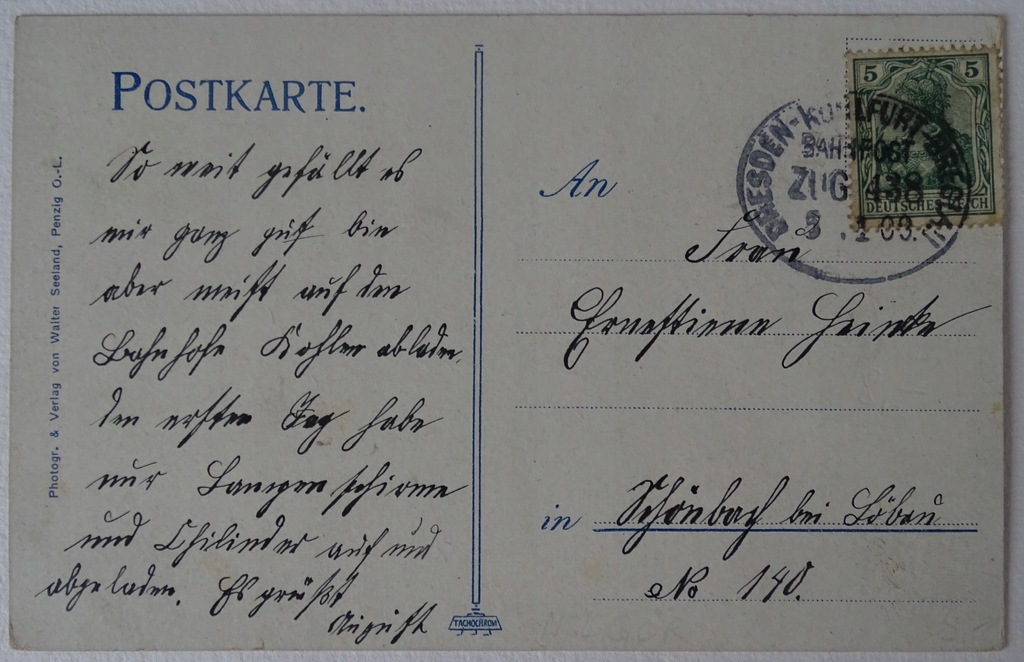 POSTKARTE.
So weit gefällt es
mir ganz gut bin
aber meist auf den
Bahnhofe Kohlen abladen.
den ersten Tag habe
nur Lampenschirme
und Chilinder auf und
abgeladen. Es grüßt
August
Photogr. & Verlag von Walter Seeland, Penzig O.-L.
TACHOCHROM
5 5
DEUTSCHES REICH
DRESDEN-KOHLFURT-BRESLAU
BAHNPOST
ZUG 438
3 .1 09.
An
Frau
Ernestiene Heinke
in Schönbach bei Löbau
No 140.